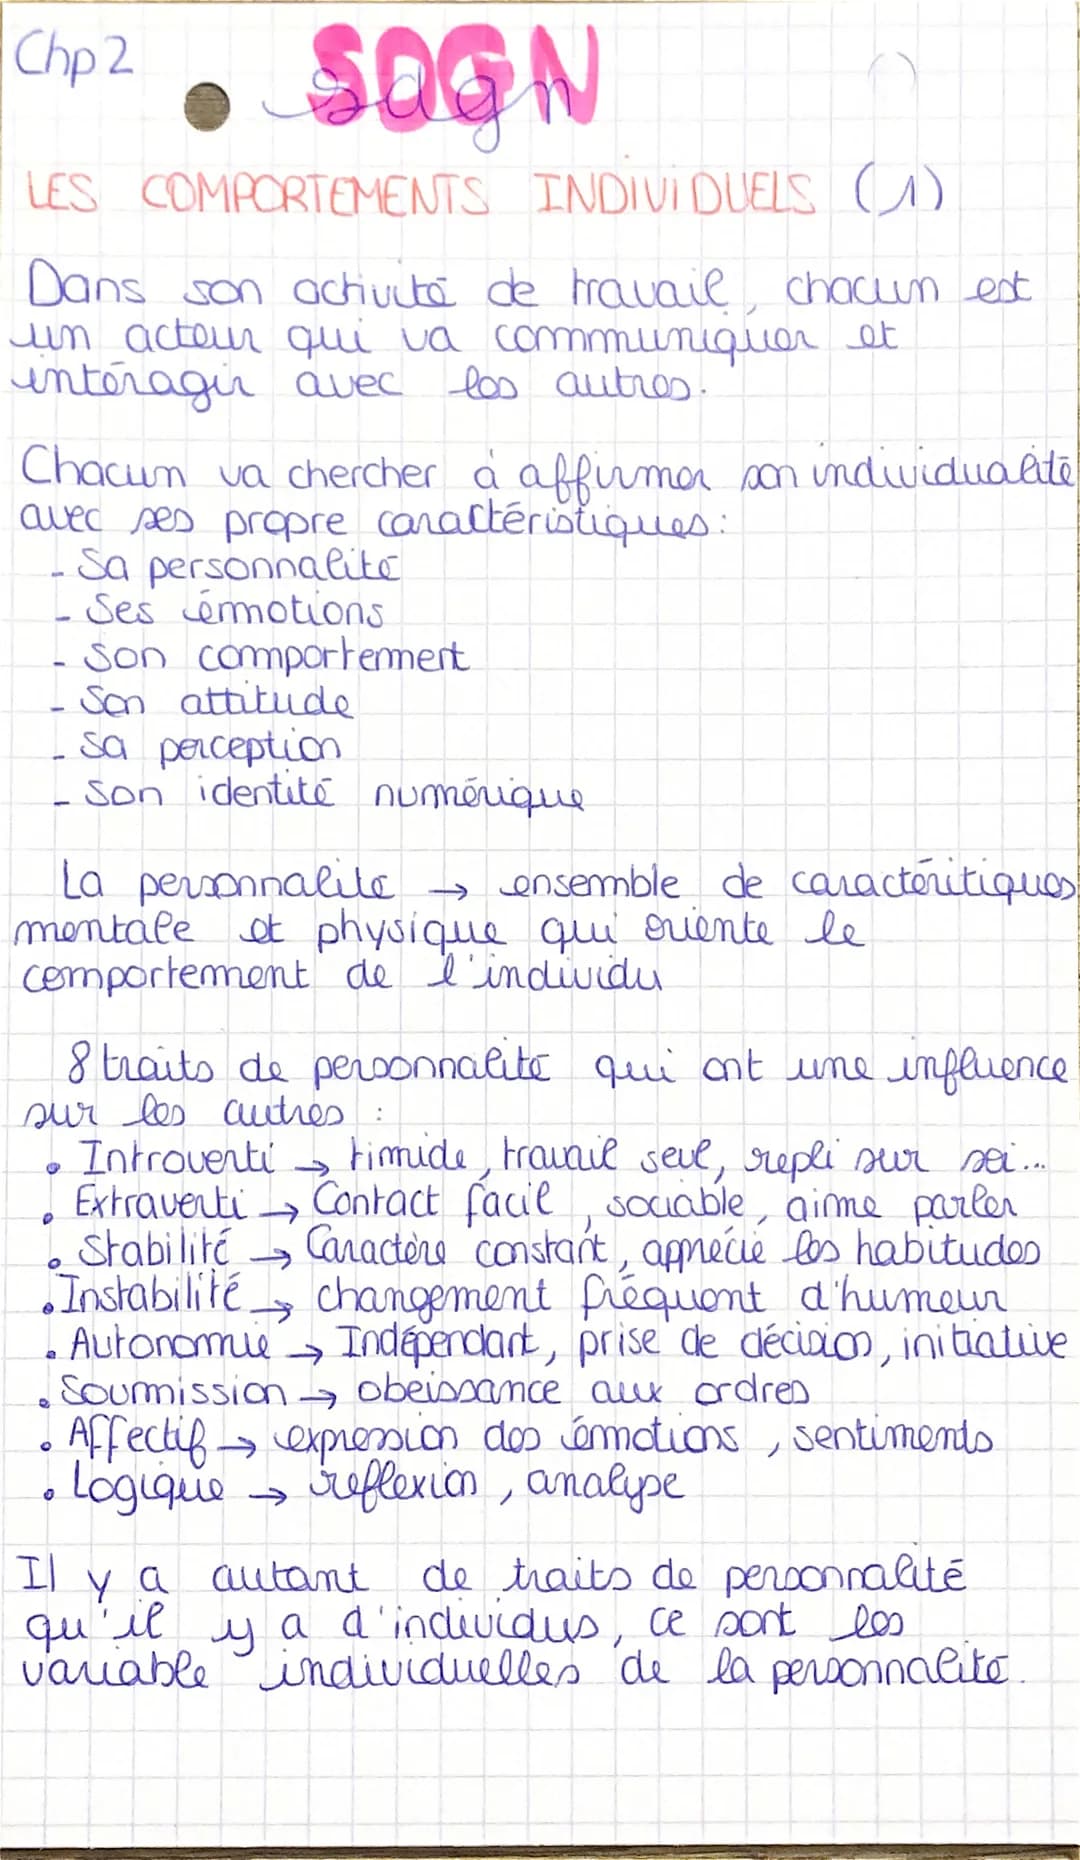 Chp 2
SDGN
sdgn
LES COMPORTEMENTS INDIVIDUELS (1)
Dans son activité de travail, chacun est
un acteur qui va communiquer et
intéragir avec les autres.
Chacun va chercher à affirmer son individualité
avec ses propre caractéristiques :
- Sa personnalité
- Ses émotions
- Son comportement
- Son attitude
- Sa perception
- Son identité numérique
La personnalité → ensemble de caractéritiques
mentale et physique qui oriente le
comportement de l'individu
8 traits de personnalité qui ont une influence
sur les autres :
• Introverti → timide, travail seul, repli sur soi...
• Extraverti → Contact facil, sociable, aime parler
• Stabilité → Caractère constant, apprécié les habitudes
• Instabilité → changement fréquent d'humeur
• Autonomie → Indépendant, prise de décision, initiative
• Soumission → obeissance aux ordres
• Affectif → expression des émotions, sentiments
• Logique → reflexion, analyse
Il y a autant de traits de personnalité
qu'il y a d'individus, ce sont les
variable individuelles de la personnalité.